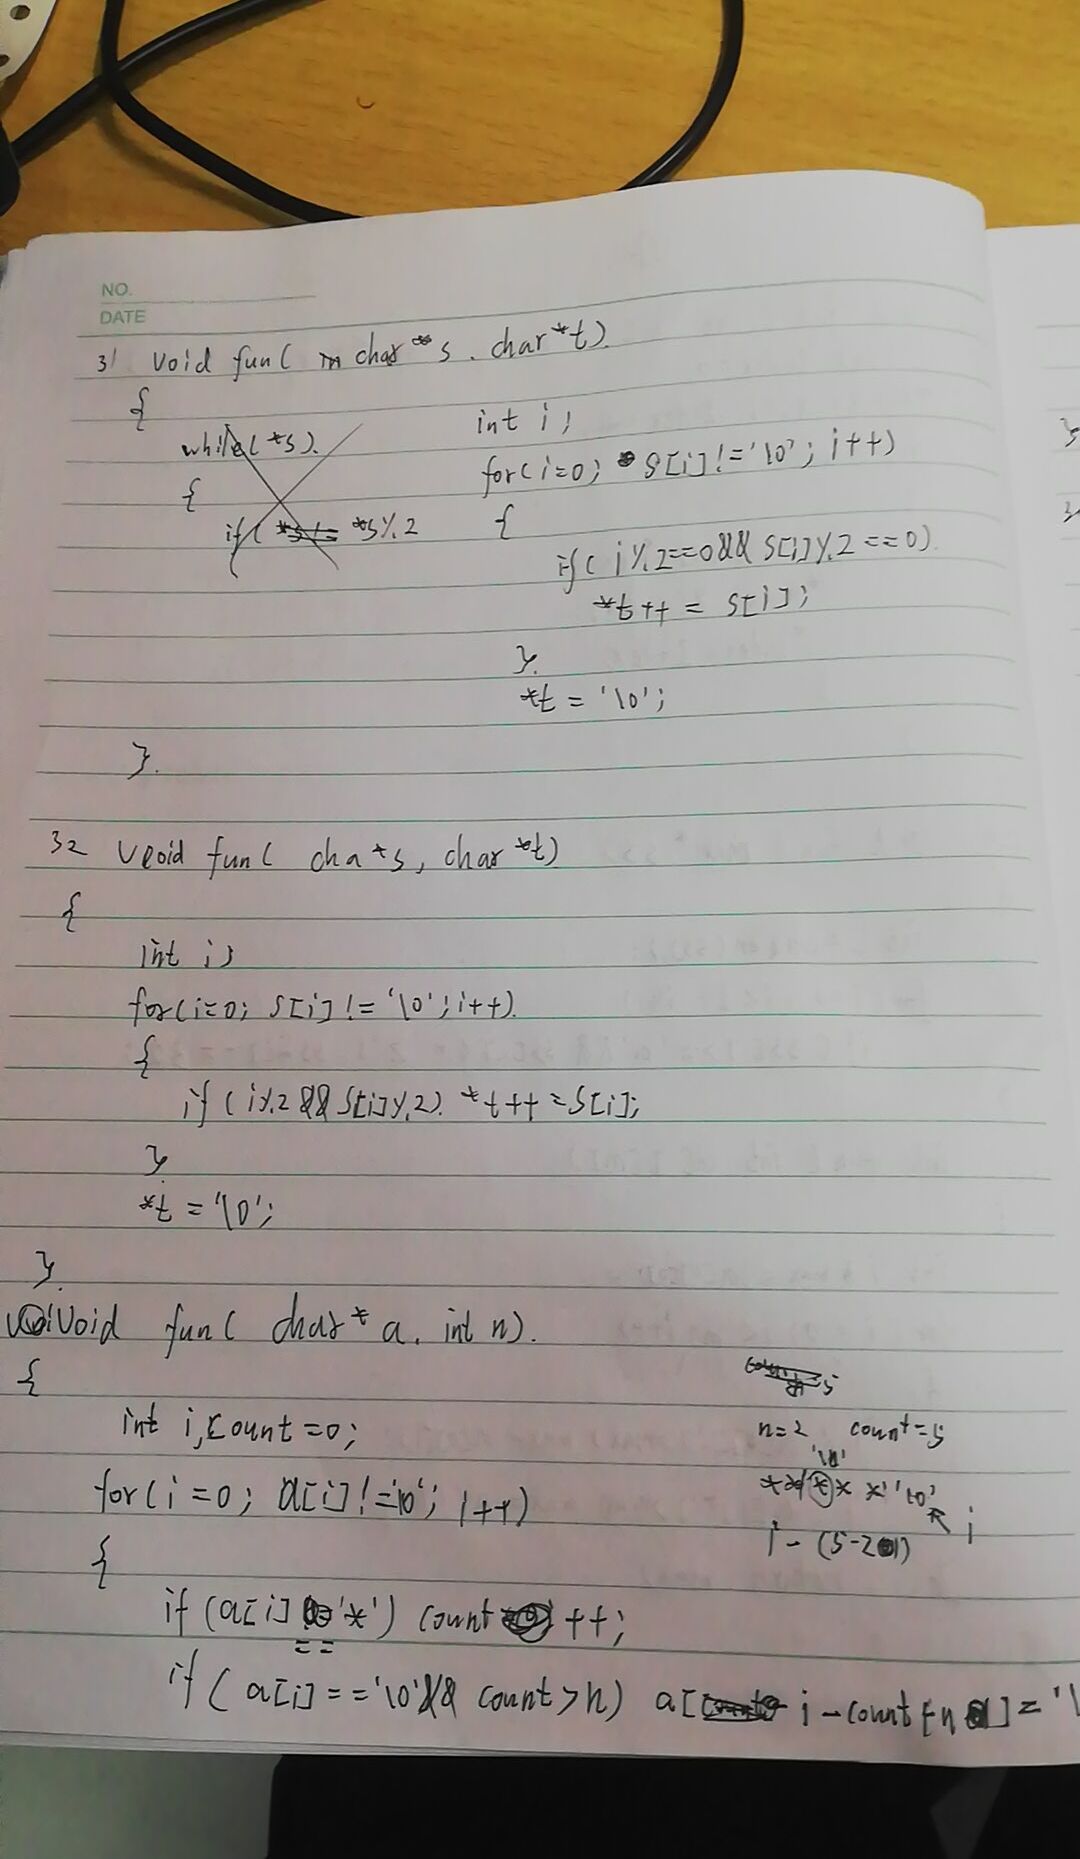 NO.
DATE
31 void fun( char *s, char *t)
{
while(*s)
{
if( *s%2
int i;
for(i=0; s[i]!='\0'; i++)
{
if( i%2==0&& s[i]%2==0)
*t++ = s[i];
}
*t = '\0';
}
32 void fun( cha*s, char *t)
{
int i;
for(i=0; s[i]!='\0';i++)
{
if (i%2&&s[i]%2) *t++=s[i];
}
*t ='\0';
}
void fun( char* a, int n)
{
int i,count=0;
for(i=0; a[i]!='\0'; i++)
{
if (a[i]=='*') count++;
if( a[i]=='\0'&& count>n) a[i-count+n]='\
n=2 count=5
'\0'
***** '\0'
i
i-(5-2)